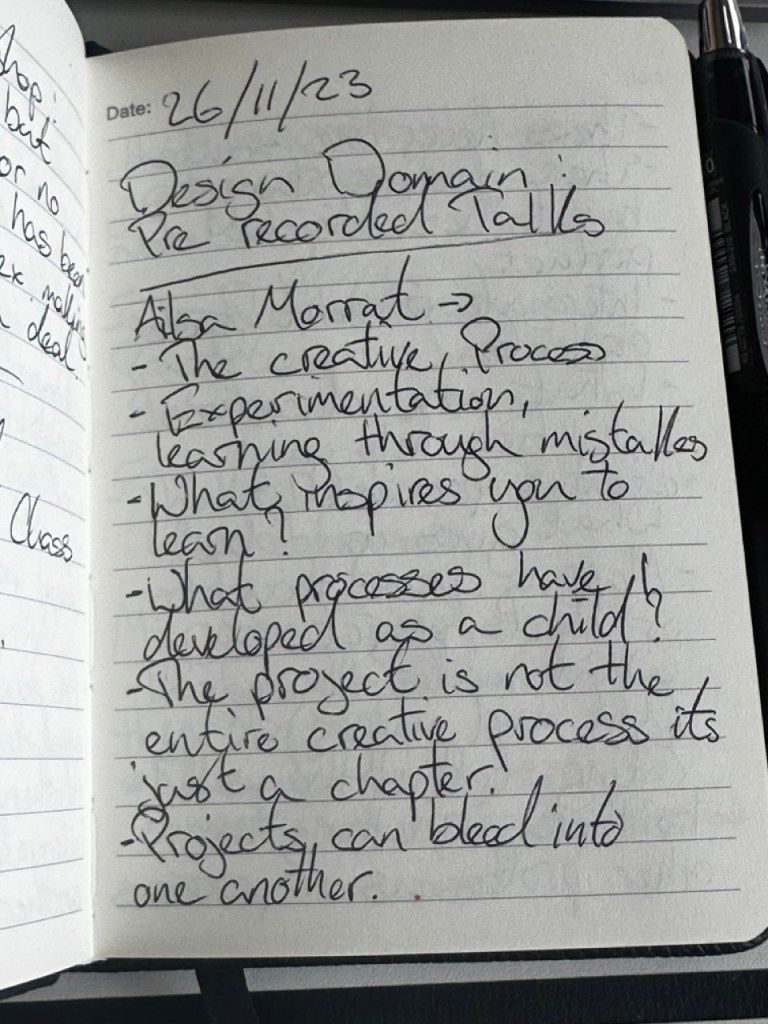 shop
but
or no
has been
ex making
deal.
Class
Date: 26/11/23
Design Domain:
Pre recorded Talks
Ailsa Morrat →
- The creative Process
- Experimentation,
learning through mistakes
- What inspires you to
learn?
- What processes have
developed as a child?
- The project is not the
entire creative process its
just a chapter.
- Projects can bleed into
one another.